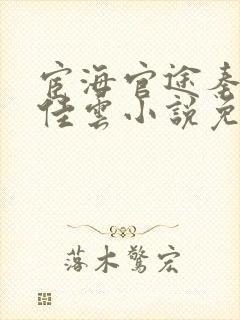 宦海官途秦
佳雲小説免
落木驚宏